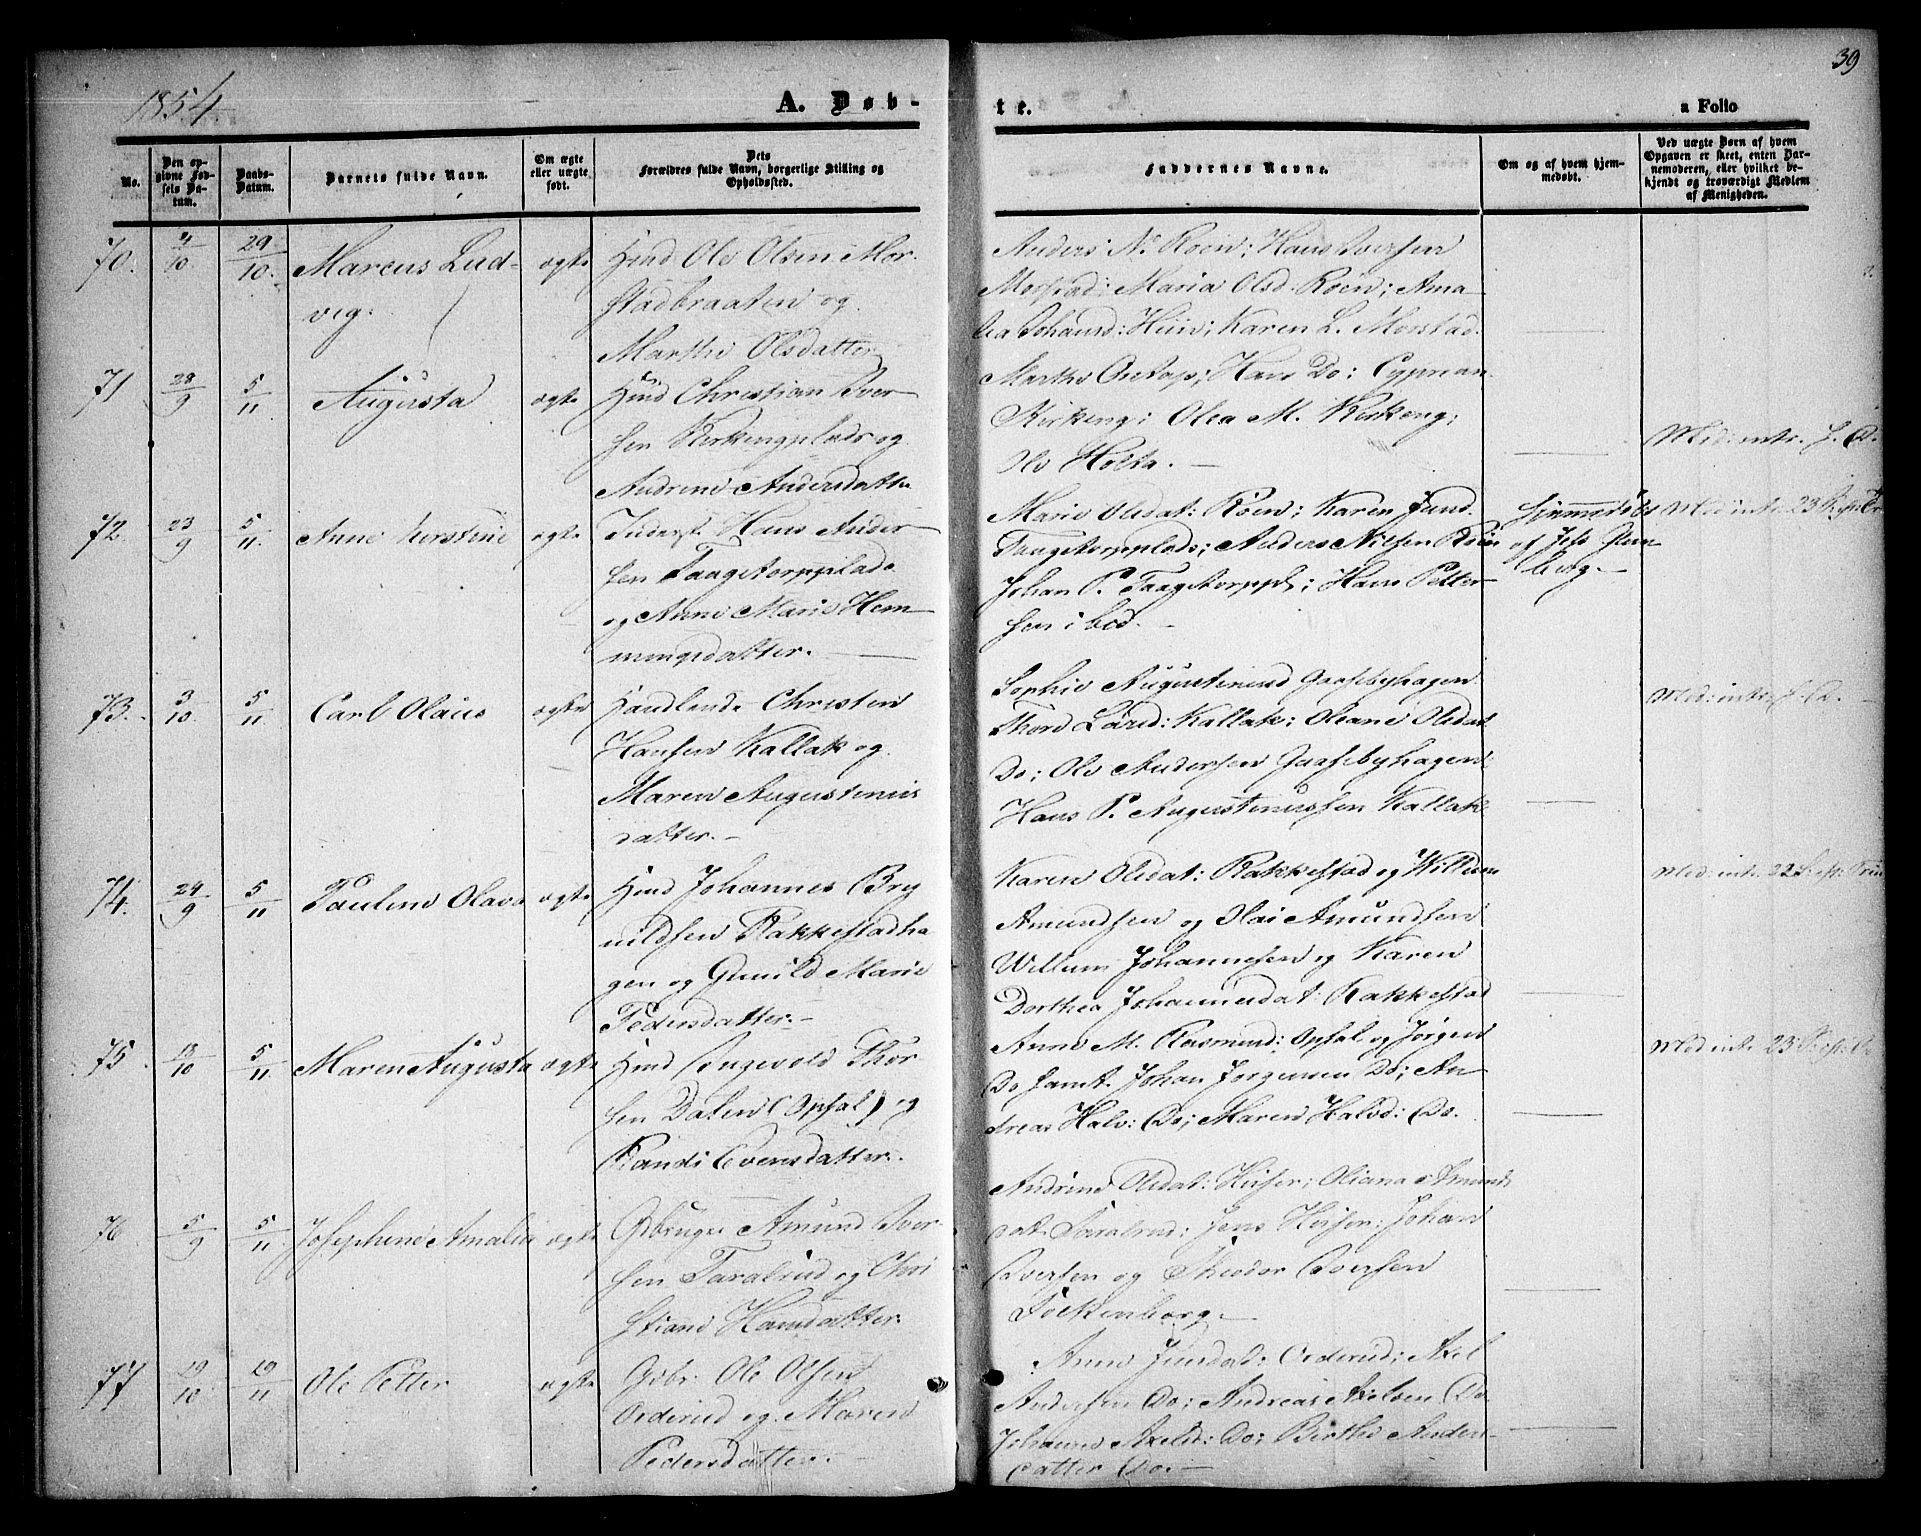 1854.
A. Døb-
te.
a Folio
39
No.
Den op-
givne Fød-
sels Da-
tum.
Daabs-
Datum.
Barnets fulde Navn.
Om ægte
eller uægte
født.
Dets
Forældres fulde Navn, borgerlige Stilling og
Opholdssted.
Faddernes Navne.
Om og af hvem hjem-
medøbt.
Ved uægte Børn af hvem
Opgaven er skeet, enten Bar-
nemoderen, eller hvilket be-
kjendt og troværdigt Medlem
af Menigheden.
70.
4/10
29/10.
Marcus Lud-
vig.
ægte
Hmd Ole Olsen Mor-
stadbraaten og
Marthe Olsdatter
Anders N. Roen; Hans Iversen
Morstad; Maria Olsd. Roen; Ama-
lia Johansd: Huin; Karen L. Morstad.
71
28/9
5/11
Augusta
ægte
Hmd Christian Iver-
sen Kirkengplads og
Andrine Andersdatter
Marthe; Hans Do; Cyprian
Kirkeng; Olea M. Kirkeng;
Ole Holta.
Mod: intr. s. D.
72.
23/9
5/11.
Anne Kirstine
ægte
Inderst Hans Ander-
sen Taagetorpplads
og Anne Marie Hem-
mingsdatter.
Marie Olsdat: Roen; Karen Jensd.
Taagetorpplads; Anders Nilsen Roen
Johan P. Taagetorppl; Hans Petter-
sen ibid.
Hjemmedøbt
af
berg.
Mod intr. 23
73.
3/10.
5/11
Carl Olaus
ægte
Handlende Christen
Hansen Kallak og
Maren Augustinus
datter.
Sophie Augustinusd Gaasebyhagen
Thord Larsd: Kallak; Oleane Olsdat
Do; Ole Andersen Gaasebyhagen;
Hans P. Augustinussen Kallak
Mod: intr. s. D.
74.
24/9
5/11
Pauline Olava
ægte
Hmd Johannes Bry
nildsen Rakkestadha
gen og Gunild Marie
Pedersdatter.
Karen Olsdat: Rakkestad og Willum
Amundsen og Olai Amundsen
Willum Johannesen og Karen
Dorthea Johannesdat: Rakkestad
Mod: intr. 22 S. p. Trin
75.
13/10
5/11.
Maren Augusta
ægte
Hmd Ingevold Thor-
sen Dalen (Opsal) og
Randi Evensdatter.
Anne M. Rasmusd: Opsal og Jørgen
Do samt Johan Jørgensen Do; An-
dreas Halv: Do; Maren Halvd: Do.
Mod intr. 23 S. p.
76
5/9
5/11
Josephine Amalia
ægte
Gbruger Amund Iver-
sen Taralrud og Chri
stiane Hansdatter
Andrine Olsdat: Huser; Oliana Amunds
dat. Taralrud; Jens Huser; Johan
Iversen og Theodor Iversen
Sockenborg.
77
19/10
19/11
Ole Petter
ægte
Gbr: Ole Olsen
Orderud og Maren
Pedersdatter.
Anne Jensdat: Orderud; Axel
Andersen Do; Andreas Axelsen Do
Johanne Axelsd: Do; Birthe Anders-
datter Do.